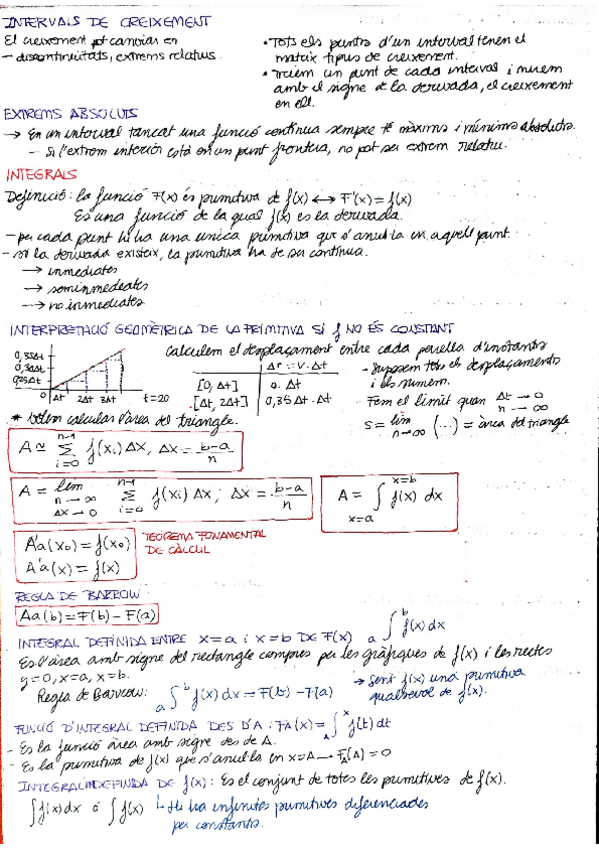 INTERVALS DE CREIXEMENT
El creixement pot canviar en
- discontinuïtats, extrems relatius.
• Tots els punts d'un interval tenen el
mateix tipus de creixement.
• Triem un punt de cada interval i mirem
amb el signe de la derivada, el creixement
en ell.
EXTREMS ABSOLUTS
→ En un interval tancat una funció contínua sempre té màxims i mínims absoluts.
- Si l'extrem interior està en un punt frontera, no pot ser extrem relatiu.
INTEGRALS
Definició: la funció F(x) és primitiva de f(x) ↔ F'(x) = f(x)
És una funció de la qual f(x) es la derivada.
- per cada punt hi ha una única primitiva que s'anul·la en aquell punt.
- si la derivada existeix, la primitiva ha de ser contínua.
→ inmediates
→ seminmediates
→ no inmediates
INTERPRETACIÓ GEOMÈTRICA DE LA PRIMITIVA SI f NO ÉS CONSTANT
Calculem el desplaçament entre cada parella d'instants
0 Δt 2Δt 3Δt t=20
Δr = v·Δt
[0, Δt] 0·Δt
[Δt, 2Δt] 0,35Δt·Δt
- Suposem tots els desplaçaments
i els sumem.
- Fem el límit quan Δt → 0
n → ∞
s = lim n→∞ (...) = àrea del triangle
* Volem calcular l'àrea del triangle.
A ≃ n-1 Σ i=0 f(xi) Δx, Δx = b-a/n
A = lim n→∞ Δx→0 n-1 Σ i=0 f(xi) Δx; Δx = b-a/n
A = ∫ x=b x=a f(x) dx
A'a(x₀) = f(x₀)
A'a(x) = f(x)
TEOREMA FONAMENTAL
DE CÀLCUL
REGLA DE BARROW:
Aa(b) = F(b) - F(a)
INTEGRAL DEFINIDA ENTRE x=a i x=b DE F(x) a∫b f(x) dx
És l'àrea amb signe del rectangle comprès per les gràfiques de f(x) i les rectes
y=0, x=a, x=b.
Regla de Barrow: a∫b f(x) dx = F(b) - F(a)
→ Sent f(x) una primitiva
qualsevol de f(x).
FUNCIÓ D'INTEGRAL DEFINIDA DES D'A: FA(x) = ∫A x f(t) dt
- És la funció àrea amb signe des de A.
- És la primitiva de f(x) que s'anul·la en x=A → FA(A) = 0
INTEGRAL INDEFINIDA DE f(x): És el conjunt de totes les primitives de f(x).
∫f(x)dx ó ∫f(x) ↳ Hi ha infinites primitives diferenciades
per constants.